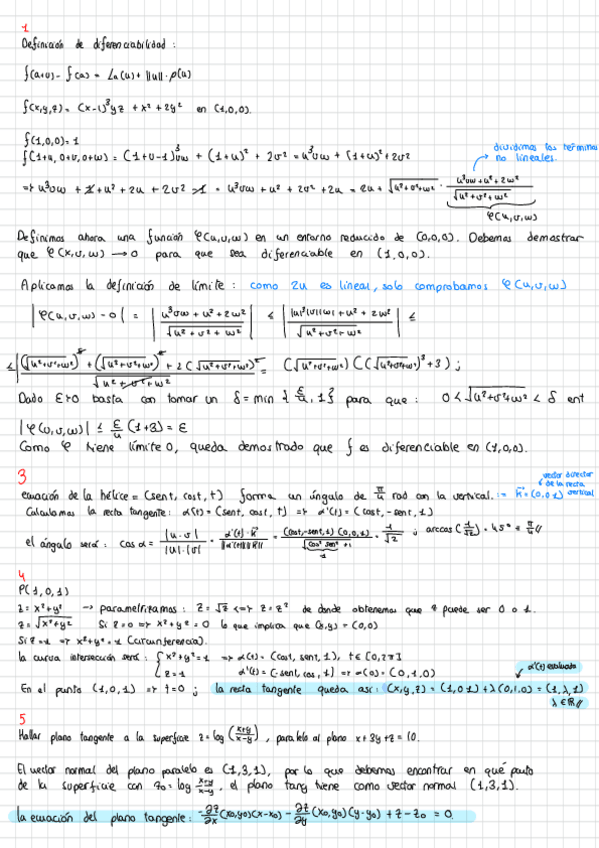 1
Definición de diferenciabilidad :
f(a+u) - f(a) = La(u) + ||u|| · ρ(u)
f(x,y,z) = (x-1)³yz + x² + 2y² en (1,0,0).
f(1,0,0) = 1
f(1+u, 0+v, 0+w) = (1+u-1)³vw + (1+u)² + 2v² = u³vw + (1+u)² + 2v²
dividimos los terminos no lineales.
=> u³vw + 1 + u² + 2u + 2v² - 1 = u³vw + u² + 2v² + 2u = 2u + √(u²+v²+w²) · (u³vw + u² + 2w²)/√(u²+v²+w²)
φ(u,v,w)
Definimos ahora una función φ(u,v,w) en un entorno reducido de (0,0,0). Debemos demostrar
que φ(x,v,w) → 0 para que sea diferenciable en (1,0,0).
Aplicamos la definición de límite : como 2u es lineal, solo comprobamos φ(u,v,w)
|φ(u,v,w) - 0| = |(u³vw + u² + 2w²)/√(u²+v²+w²)| ≤ |(|u|³|v||w| + u² + 2w²)/√(u²+v²+w²)| ≤
Dado ε>0 basta con tomar un δ = min {ε/4, 1} para que : 0 < √(u²+v²+w²) < δ ent
|φ(v,v,w)| ≤ ε/4 (1+3) = ε
Como φ tiene límite 0, queda demostrado que f es diferenciable en (1,0,0).
3
ecuación de la hélice = (sent, cost, t) forma un ángulo de π/4 rad con la vertical. := k⃗ = (0,0,1)
vector director de la recta vertical
Calculamos la recta tangente : α(t) = (sent, cost, t) => α'(t) = (cost, -sent, 1)
el ángulo será : cos α = |u·v|/|u|·|v| = α'(t)·k⃗/||α'(t)|| ||k|| = (cost,-sent,1)(0,0,1)/√(cos² sen² +1) = 1/√2 ; arccos(1/√2) = 45° = π/4 //
4
P(1,0,1)
z = x²+y² → parametrizamos : z = √z <=> z = z² de donde obtenemos que z puede ser 0 o 1.
z = √(x²+y²) Si z=0 => x²+y² = 0 lo que implica que (x,y) = (0,0)
Si z=1 => x²+y² = 1 (circunferencia).
la curva intersección será : { x²+y²=1 => α(t) = (cost, sent, 1), t ∈ [0,2π]
z=1 α'(t) = (-sent, cos, 1) => α(0) = (0,1,0)
α'(t) evaluada
En el punto (1,0,1) => t=0 ; la recta tangente queda así : (x,y,z) = (1,0,1) + λ(0,1,0) = (1,λ,1)
λ ∈ ℝ //
5
Hallar plano tangente a la superficie z = log((x+y)/(x-y)), paralelo al plano x+3y+z = 10.
El vector normal del plano paralelo es (1,3,1), por lo que debemos encontrar en qué punto
de la superficie con z₀ = log (x+y)/(x-y), el plano tang tiene como vector normal (1,3,1).
la ecuación del plano tangente : -∂z/∂x (x₀,y₀)(x-x₀) - ∂z/∂y (x₀,y₀)(y-y₀) + z - z₀ = 0.